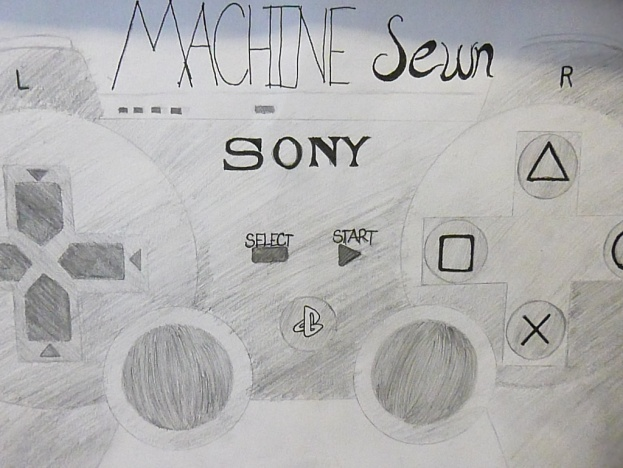 MACHINE Sewn
L R
SONY
SELECT START